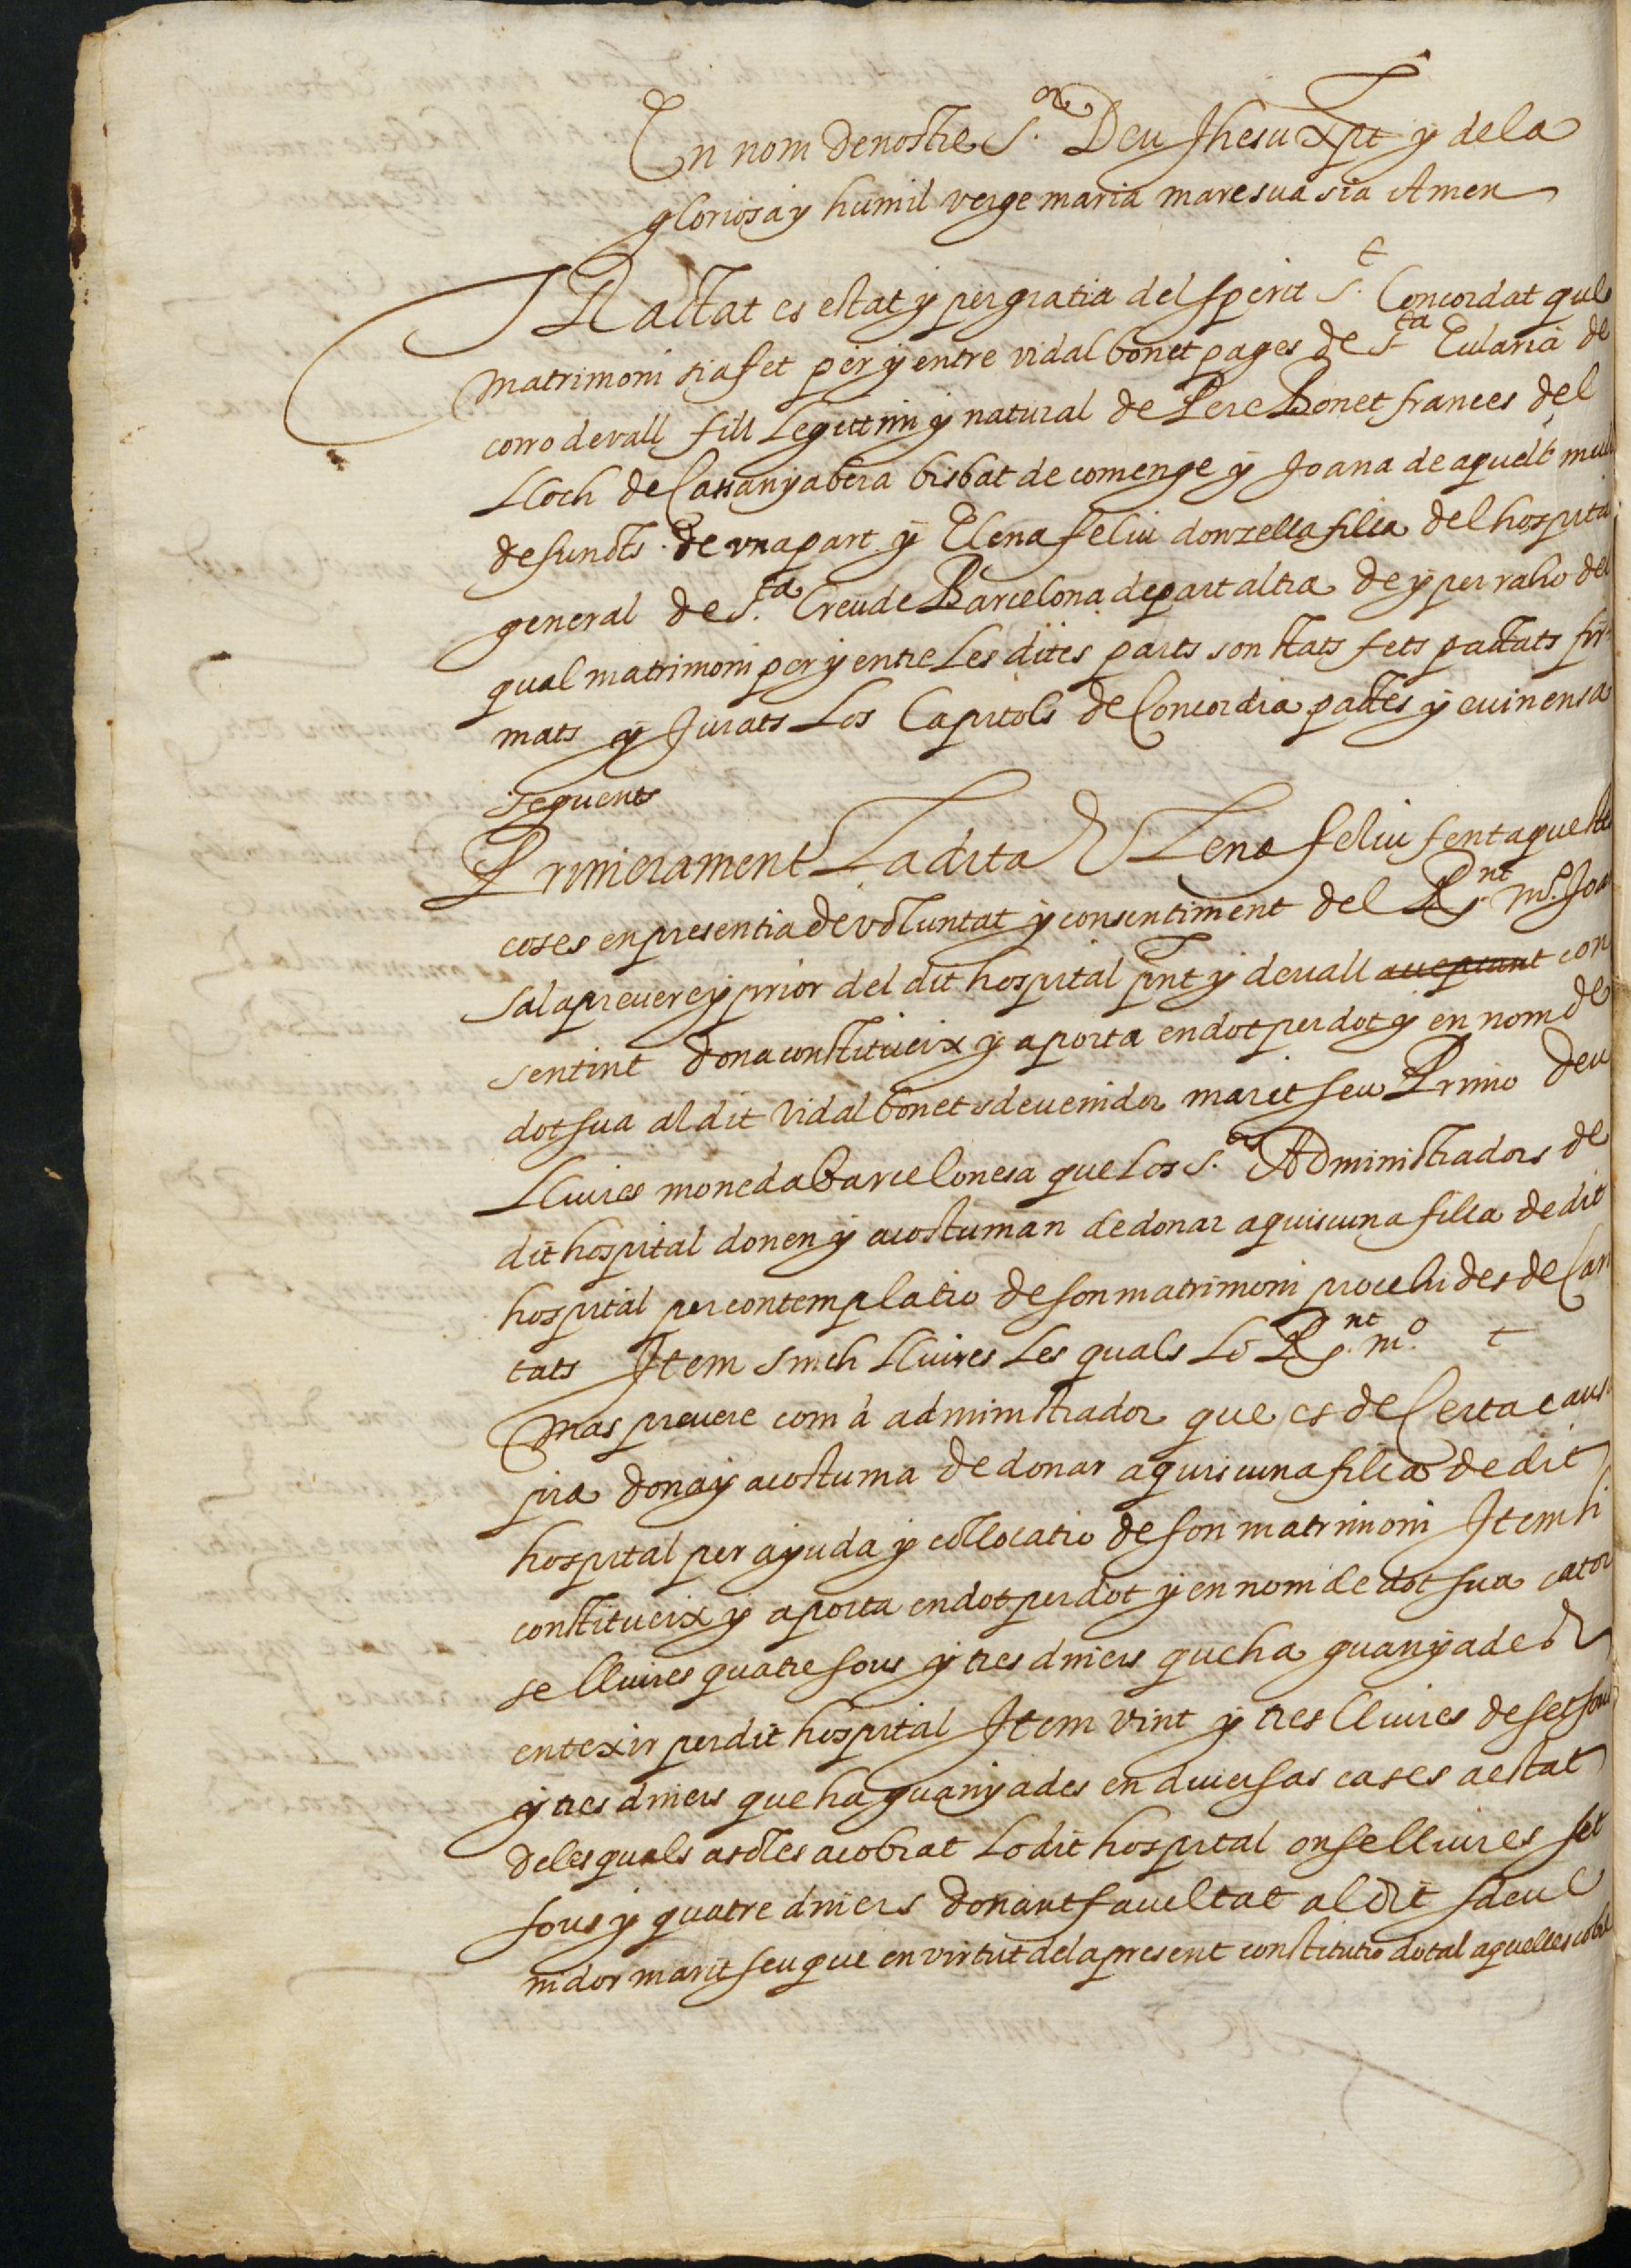 En nom de nostre S.or Deu Jhesu Xpt y de la
gloriosa y humil verge maria mare sua sia Amen
TRactat es estat y per gratia del sperit S.t Concordat que lo
matrimoni sia fet per y entre vidal bonet pages de S.ta Eularia de
corro devall fill legittim y natural de Pere Bonet frances del
Lloch de Cassanyabera bisbat de comenge y Joana de aquell mull
defuncts de vna part y Elena feliu donzella filla del hospital
general de S.ta Creu de Barcelona de part altra de y per raho del
qual matrimoni per y entre Les dites parts son stats fets pactats fir-
mats y Jurats Los Capitols de Concordia pactes y auinensa
seguents
Primerament La dita ELena feliu fent aquestes
coses en presentia de voluntat y consentiment del R.nt m.º Joa
sala preuere y prior del dit hospital pnt y devall acceptant con
sentint dona constitueix y aporta en dot per dot y en nom de
dot sua al dit vidal bonet sdeuenidor marit seu Primo deu
Lliures moneda barcelonesa que Los S.ors Administradors de
dit hospital donen y acostuman de donar a quiscuna filla de dit
hospital per contemplatio de son matrimoni procehides de Cari
tats Item sinch Lliures Les quals Lo R.nt m.º t
mas preuere com à administrador que es de Certa causa
pia dona y acostuma de donar a quiscuna filla de dit
hospital per ayuda y collocatio de son matrimoni Item li
constitueix y aporta en dot per dot y en nom de dot sua cator
se lliures quatre sous y tres dniers que ha guanyades
en texir per dit hospital Item vint y tres lliures de set sous
y tres dniers que ha guanyades en diuersas cases a estat
de les quals as dles a cobrat Lo dit hospital onse lliures set
sous y quatre dniers donant facultat al dit sdeue
nidor marit seu que en virtut de la present constitutio dotal aquelles cobre